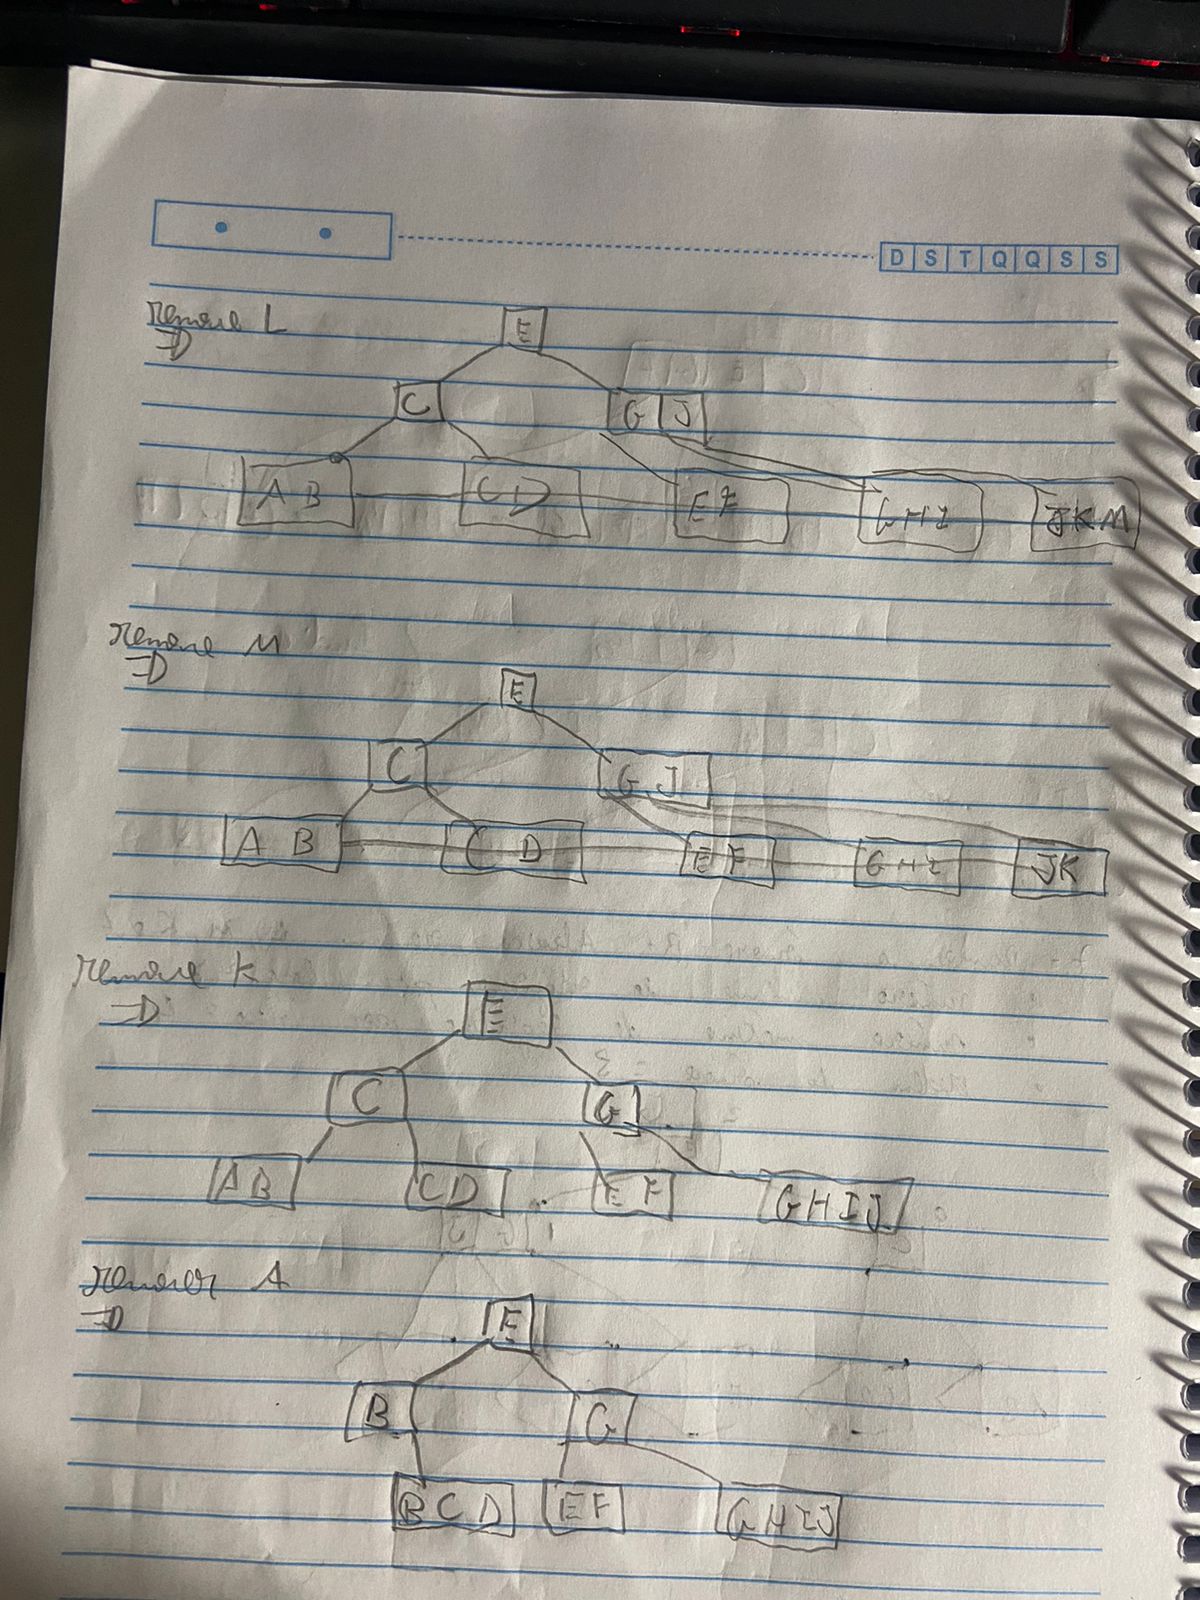 D S T Q Q S S
remove L
=D
E
C
G J
A B
C D
E F
G H I
J K M
remove M
=D
E
C
G J
A B
C D
E F
G H I
J K
remove K
=D
E
C
G
A B
C D
E F
G H I J
remover A
=D
E
B
G
B C D
E F
G H I J